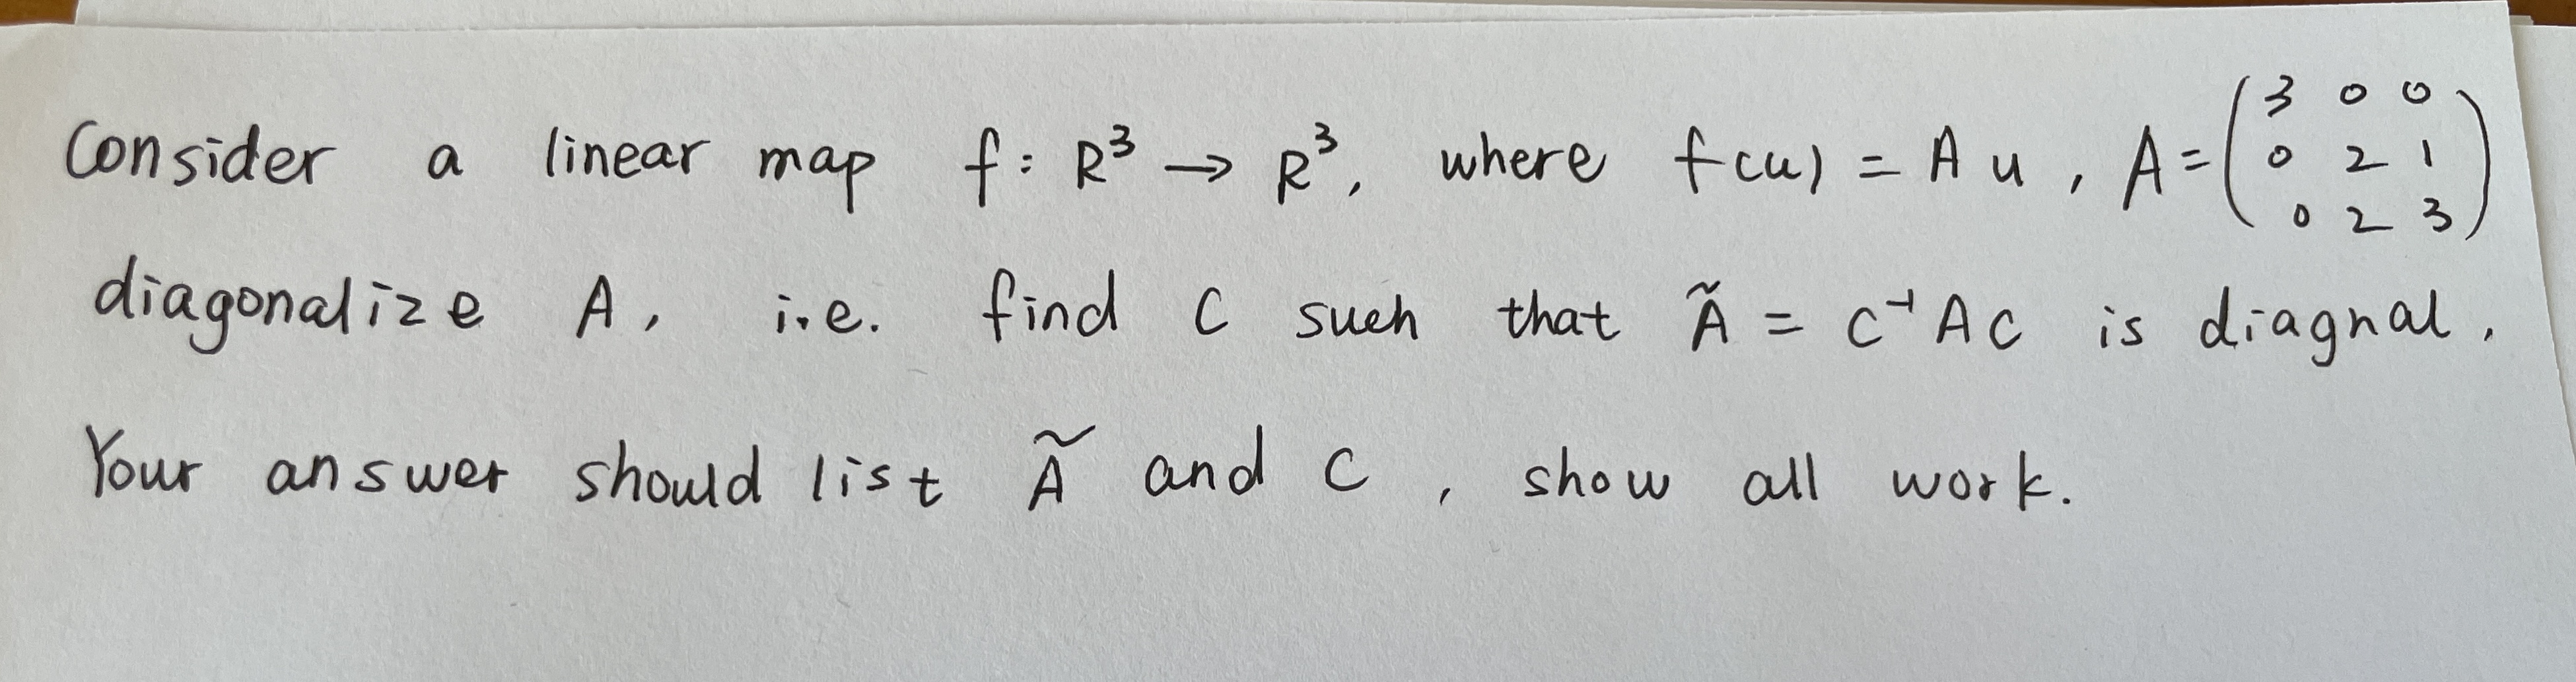 Consider a linear map f: R³ → R³, where f(u) = A u, A = (3 0 0
0 2 1
0 2 3)
diagonalize A, i.e. find C such that Ã = C⁻¹ A C is diagnal.
Your answer should list Ã and C, show all work.